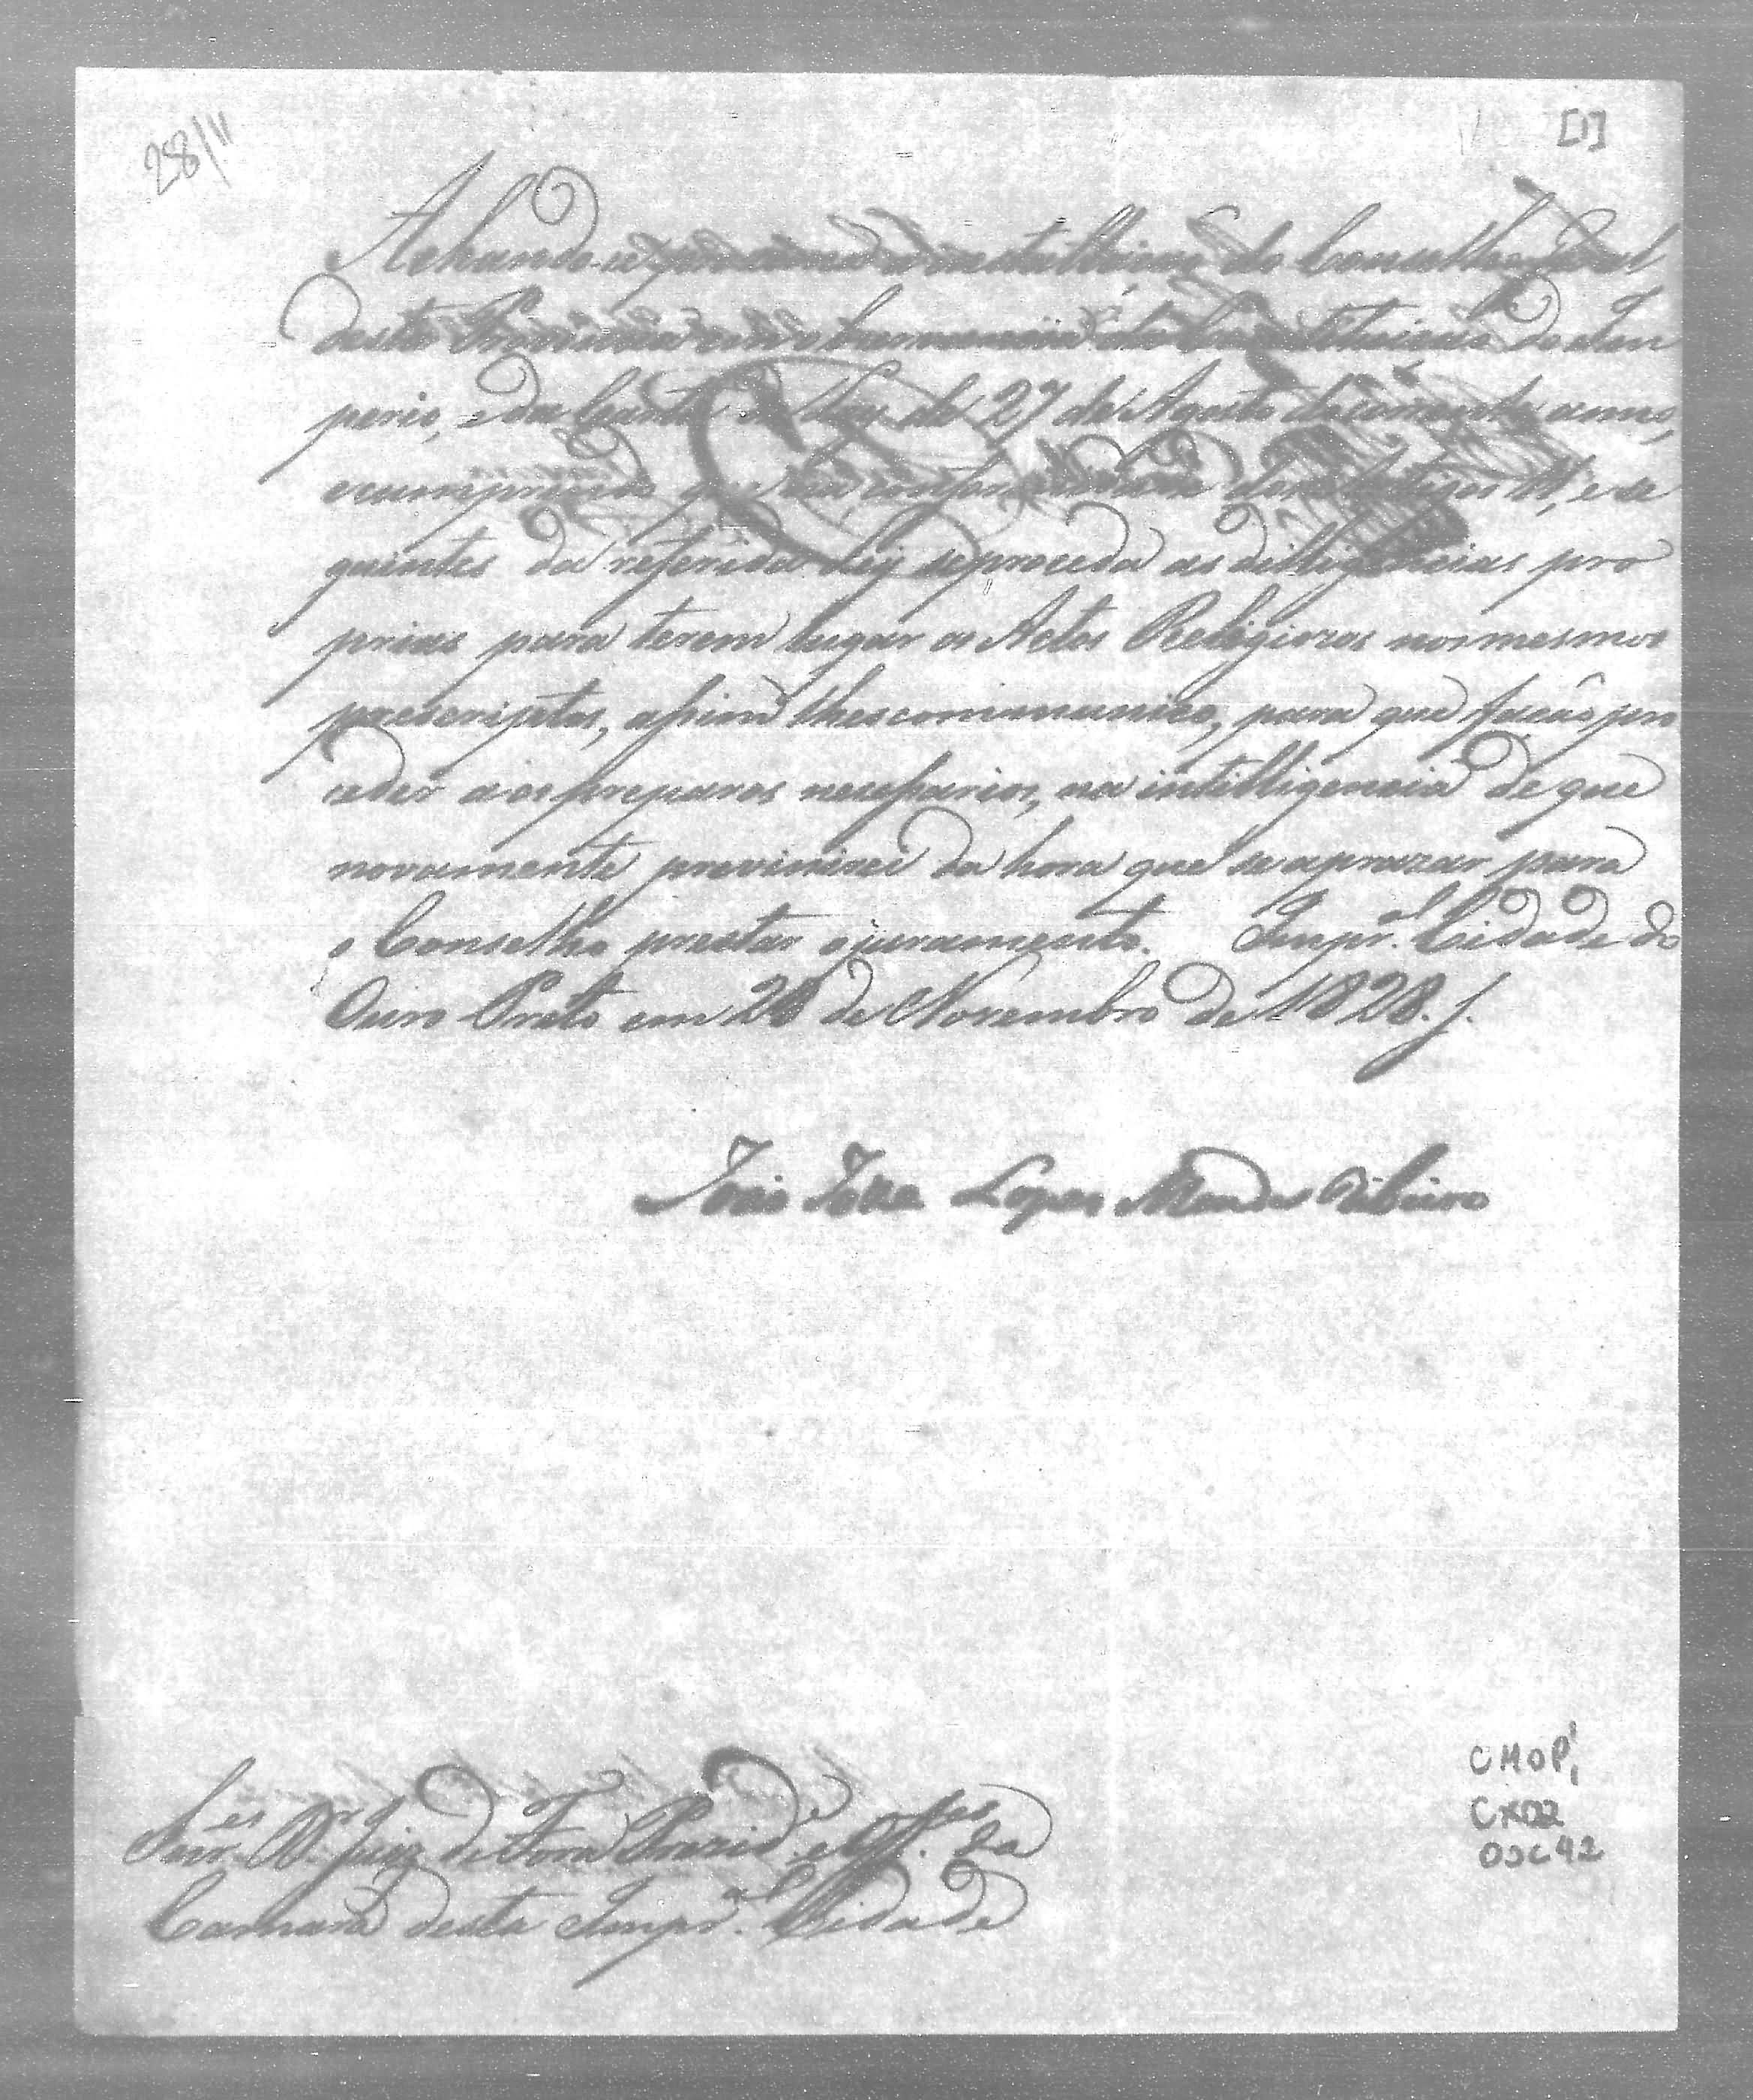 28/11
[1]
Achando-se proxima a installação do Conselho Geral
desta Provincia em observancia da Constituição do Im
perio, e da Carta de Ley de 27 de Agosto do corrente anno,
e cumprindo que na conformidade dos Artigos 11, e se
guintes da referida Ley se proceda as dilligencias pro
prias para terem lugar os Actos Religiozos nos mesmos
prescriptos, assim lhes communico, para que fação pro
ceder aos preparos necessarios, na intelligencia de que
novamente previnirei da hora que se aprazar para
o Conselho prestar o juramento. Impr.al Cidade do
Ouro Preto em 28 de Novembro de 1828.
João Joze Lopes Mendes Ribeiro
Snr.es D.r Juiz de Fora Prezid.e e Off.es da
Camara desta Impr.al Cidade
CMOP,
CX02
DOC 42